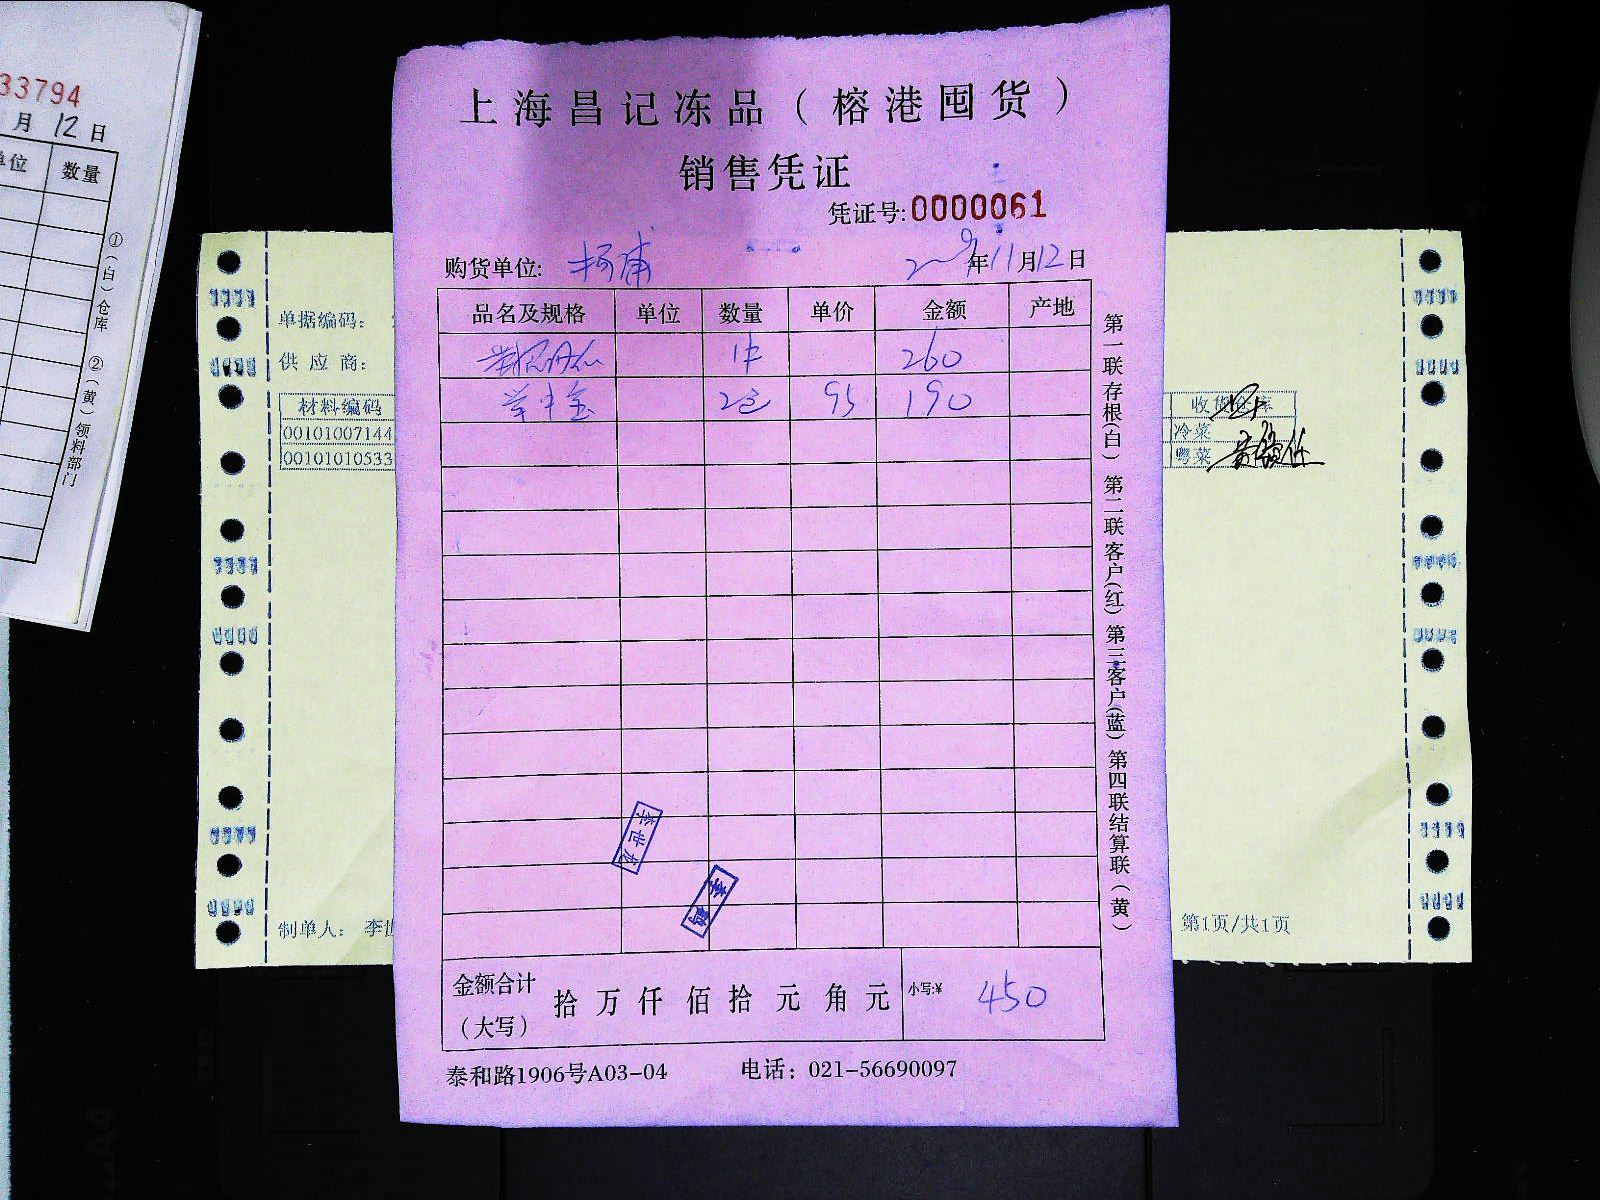 33794
月12日
单位 数量
①(白)仓库 ②(黄)领料部门
上海昌记冻品(榕港囤货)
销售凭证
凭证号:0000061
购货单位:
年11月12日
品名及规格 单位 数量 单价 金额 产地
1件 260
95 190
第一联存根(白) 第二联客户(红) 第三客户(蓝) 第四联结算联(黄)
李世龙
李鹤
金额合计(大写) 拾万仟佰拾元角元 小写:¥ 450
泰和路1906号A03-04 电话:021-56690097
单据编码:
供应商:
材料编码
00101007144
00101010533
制单人: 李世
收货仓库
冷菜
粤菜
第1页/共1页